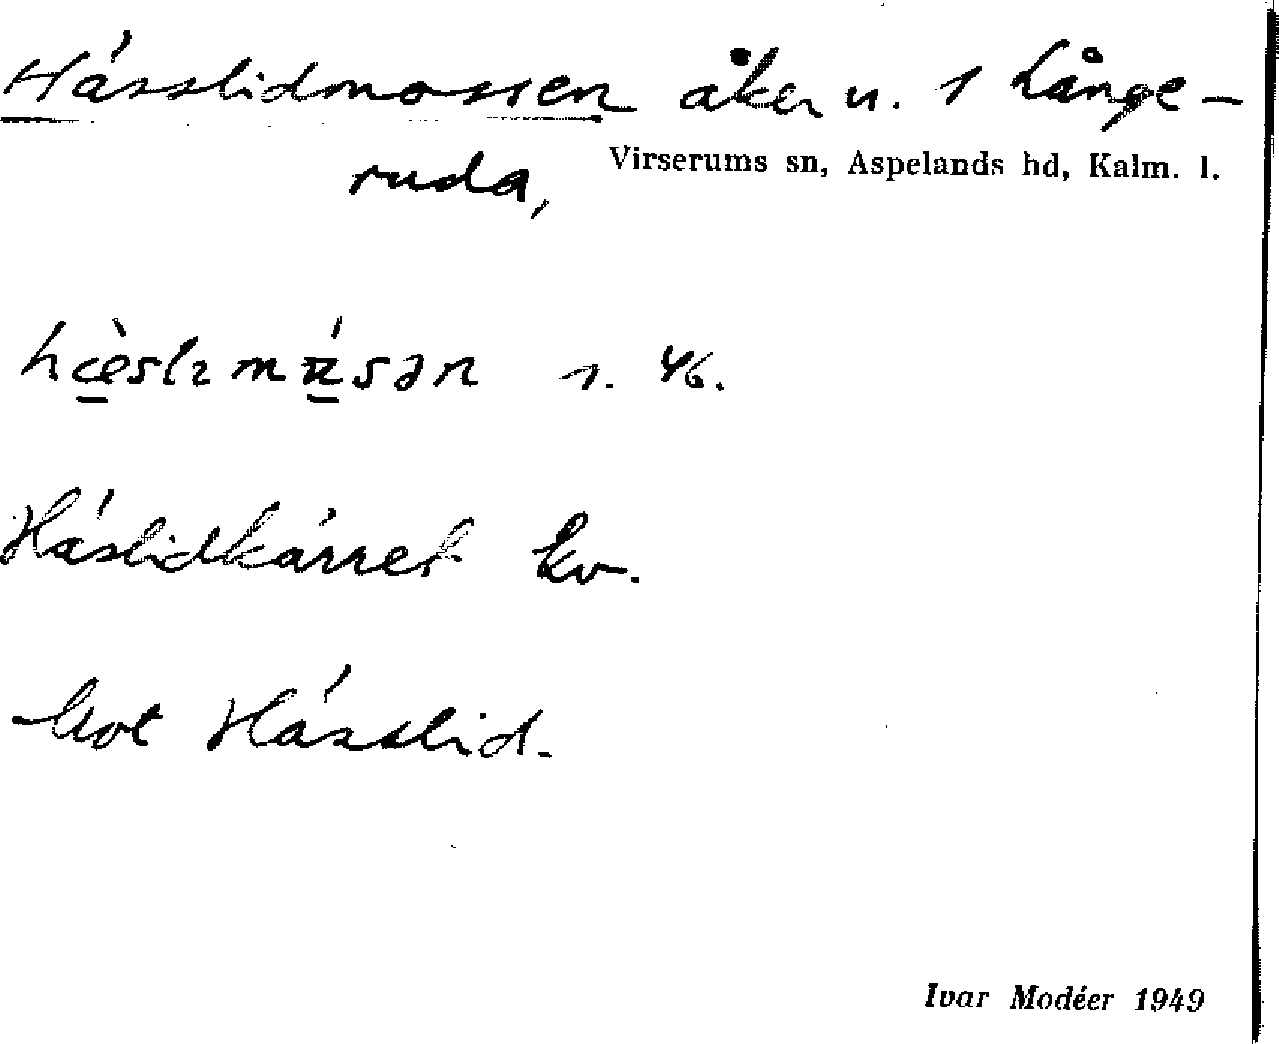 Hässlidmossen åker u. 1 Långe-
ruda, Virserums sn, Aspelands hd, Kalm. l.
hæ̀slımɷ́sən s. 46.
Häslidkärret kv.
Mot Hässlid.
Ivar Modéer 1949